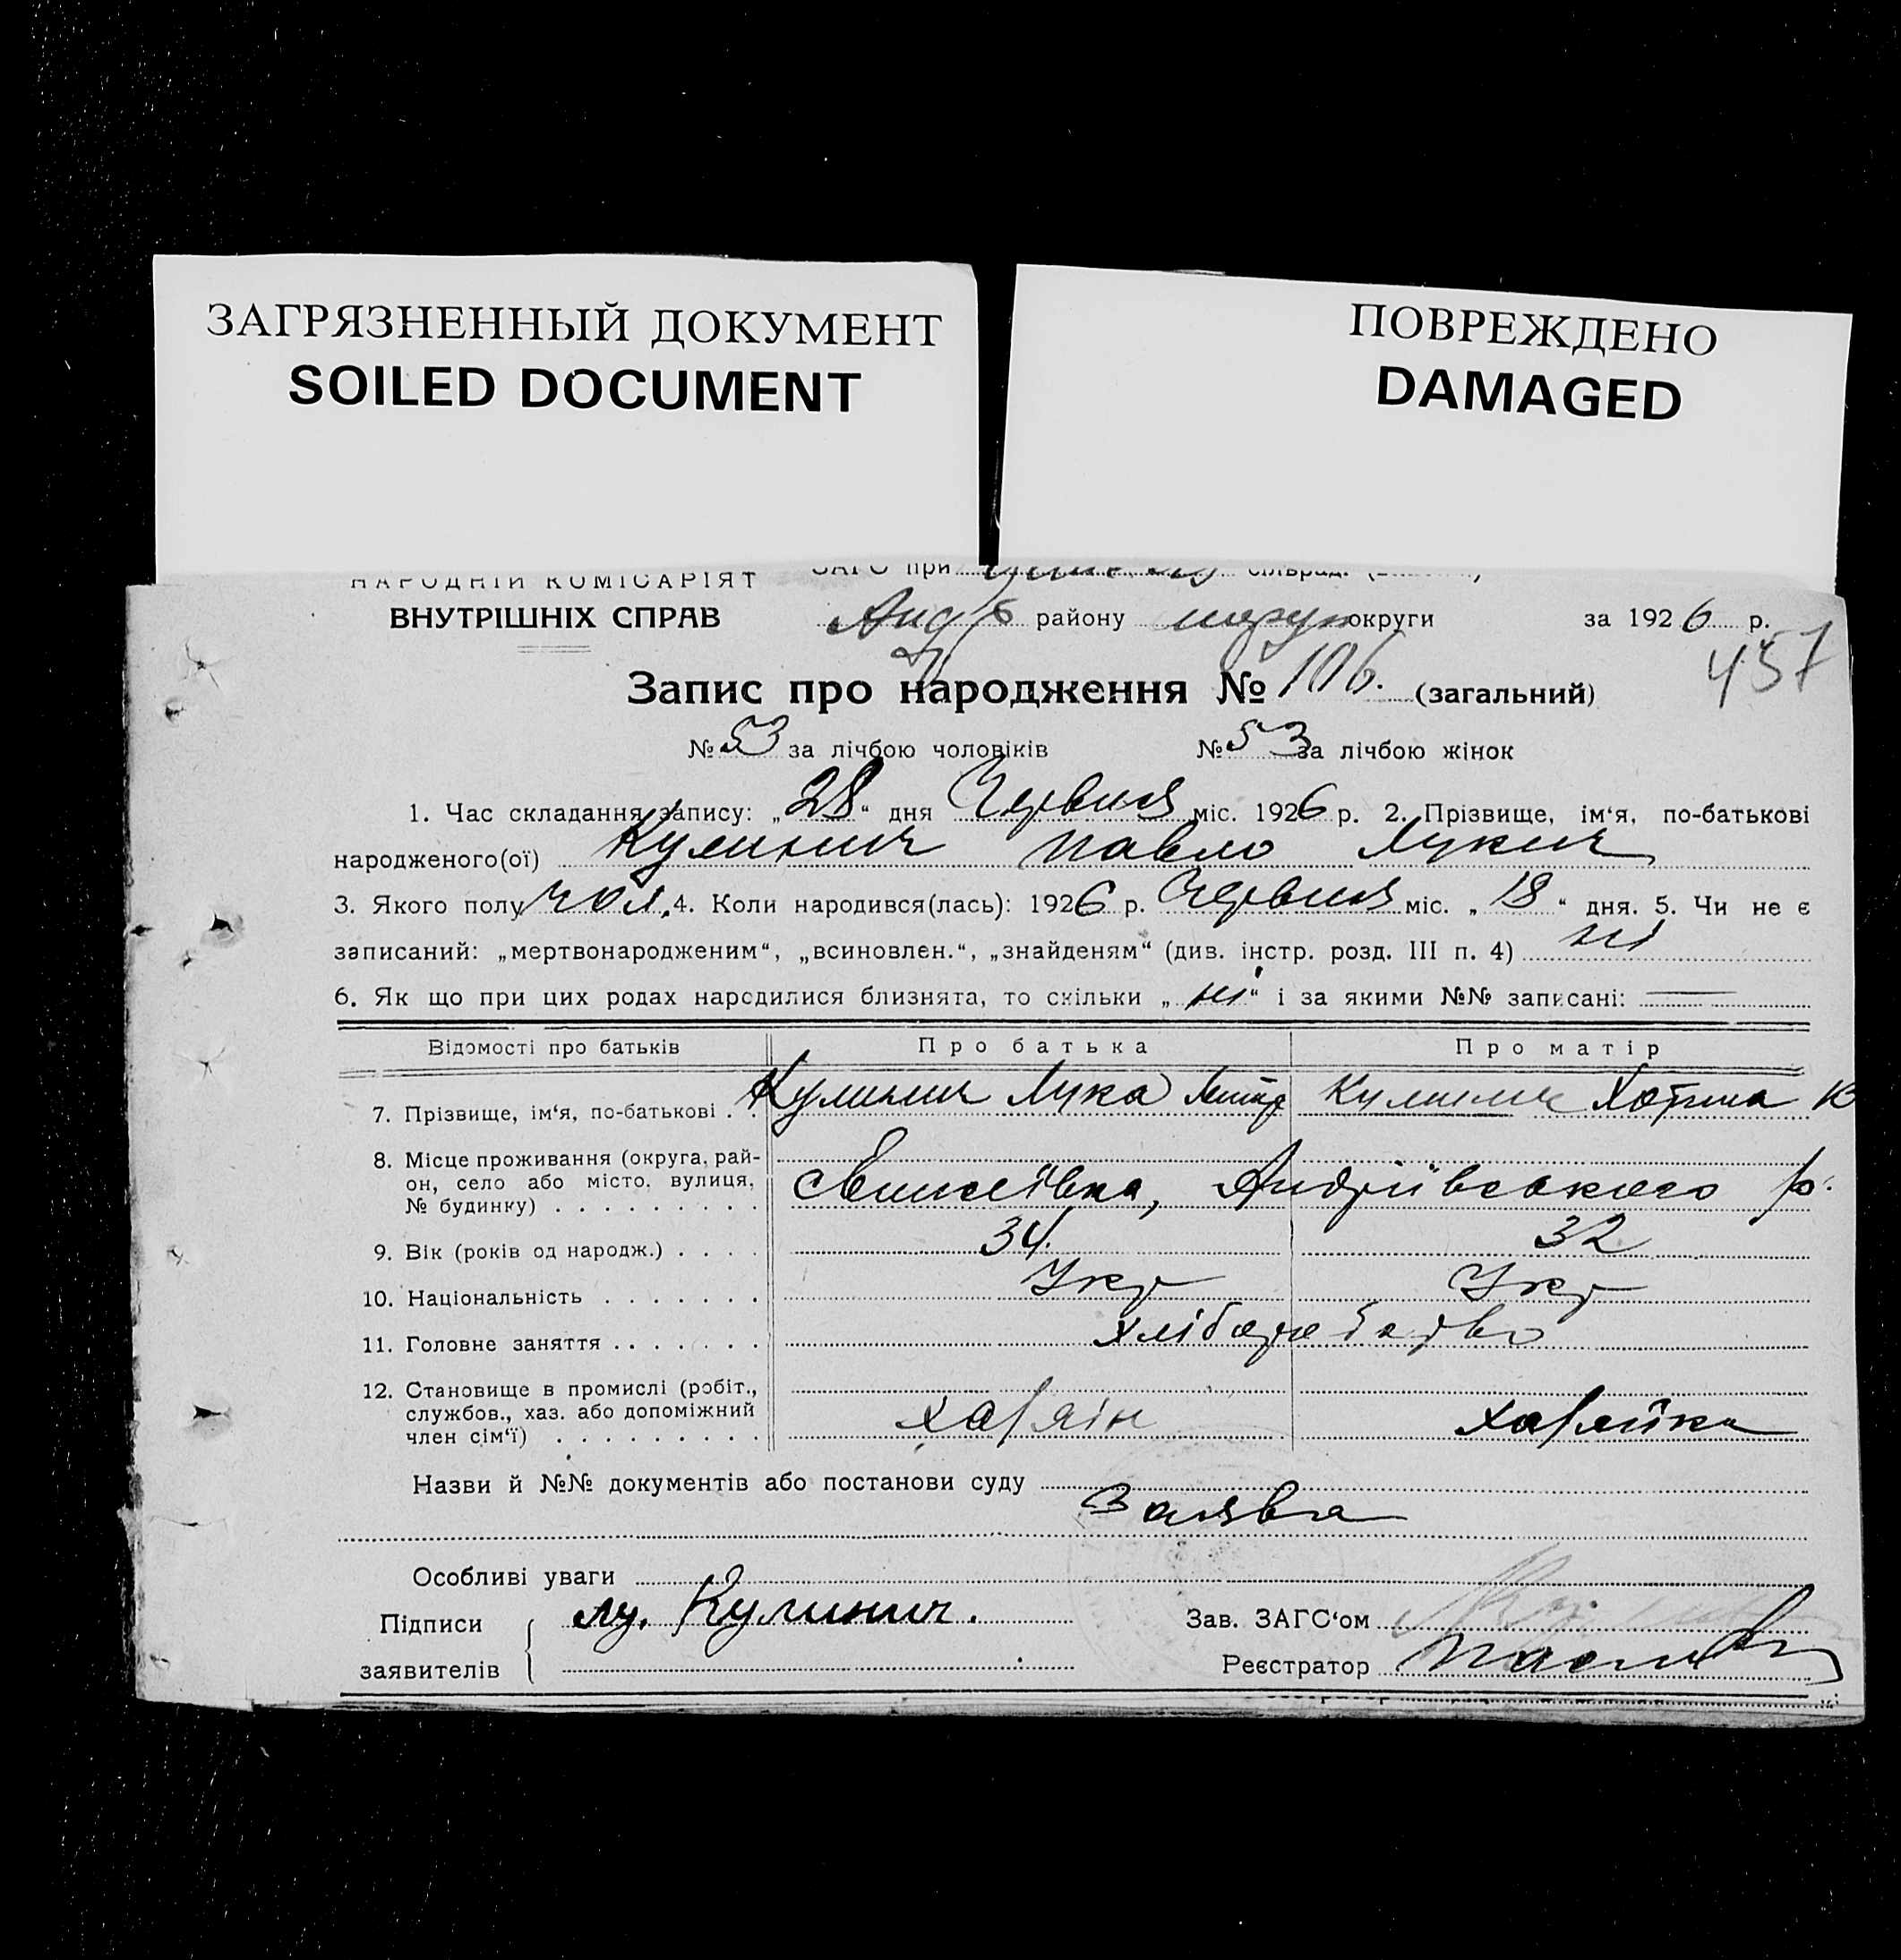 ЗАГРЯЗНЕННЫЙ ДОКУМЕНТ
SOILED DOCUMENT
ПОВРЕЖДЕНО
DAMAGED
НАРОДНІЙ КОМІСАРІЯТ ЗАГС при сільрад.
ВНУТРІШНІХ СПРАВ району округи за 1926 р.
457
Запис про народження № 106. (загальний)
№ 53 за лічбою чоловіків № 53 за лічбою жінок
1. Час складання запису: „28“ дня Червня міс. 1926 р. 2. Прізвище, ім‘я, по-батькові
народженого(ої) Кулинич Павло Лукич
3. Якого полу чол. 4. Коли народився(лась): 1926 р. Червня міс. „18“ дня. 5. Чи не є
записаний: „мертвонародженим“, „всиновлен.“, „знайденям“ (див. інстр. розд. III п. 4) ні
6. Як що при цих родах народилися близнята, то скільки „ні“ і за якими №№ записані: —
Відомості про батьків Про батька Про матір
7. Прізвище, ім‘я, по-батькові . Кулинич Лука Кулинич
8. Місце проживання (округа, рай-
он, село або місто, вулиця, Андріівського р.
№ будинку) . . . . . . . . .
9. Вік (років од народж.) . . . . 34. 32
10. Національність . . . . . . . Укр Укр
11. Головне заняття . . . . . . . хліборобство
12. Становище в промислі (робіт.,
службов., хаз. або допоміжний хазяїн хазяйка
член сім‘ї) . . . . . . . . .
Назви й №№ документів або постанови суду
Заява
Особливі уваги
Підписи Лу. Кулинич. Зав. ЗАГС‘ом
заявителів Реєстратор